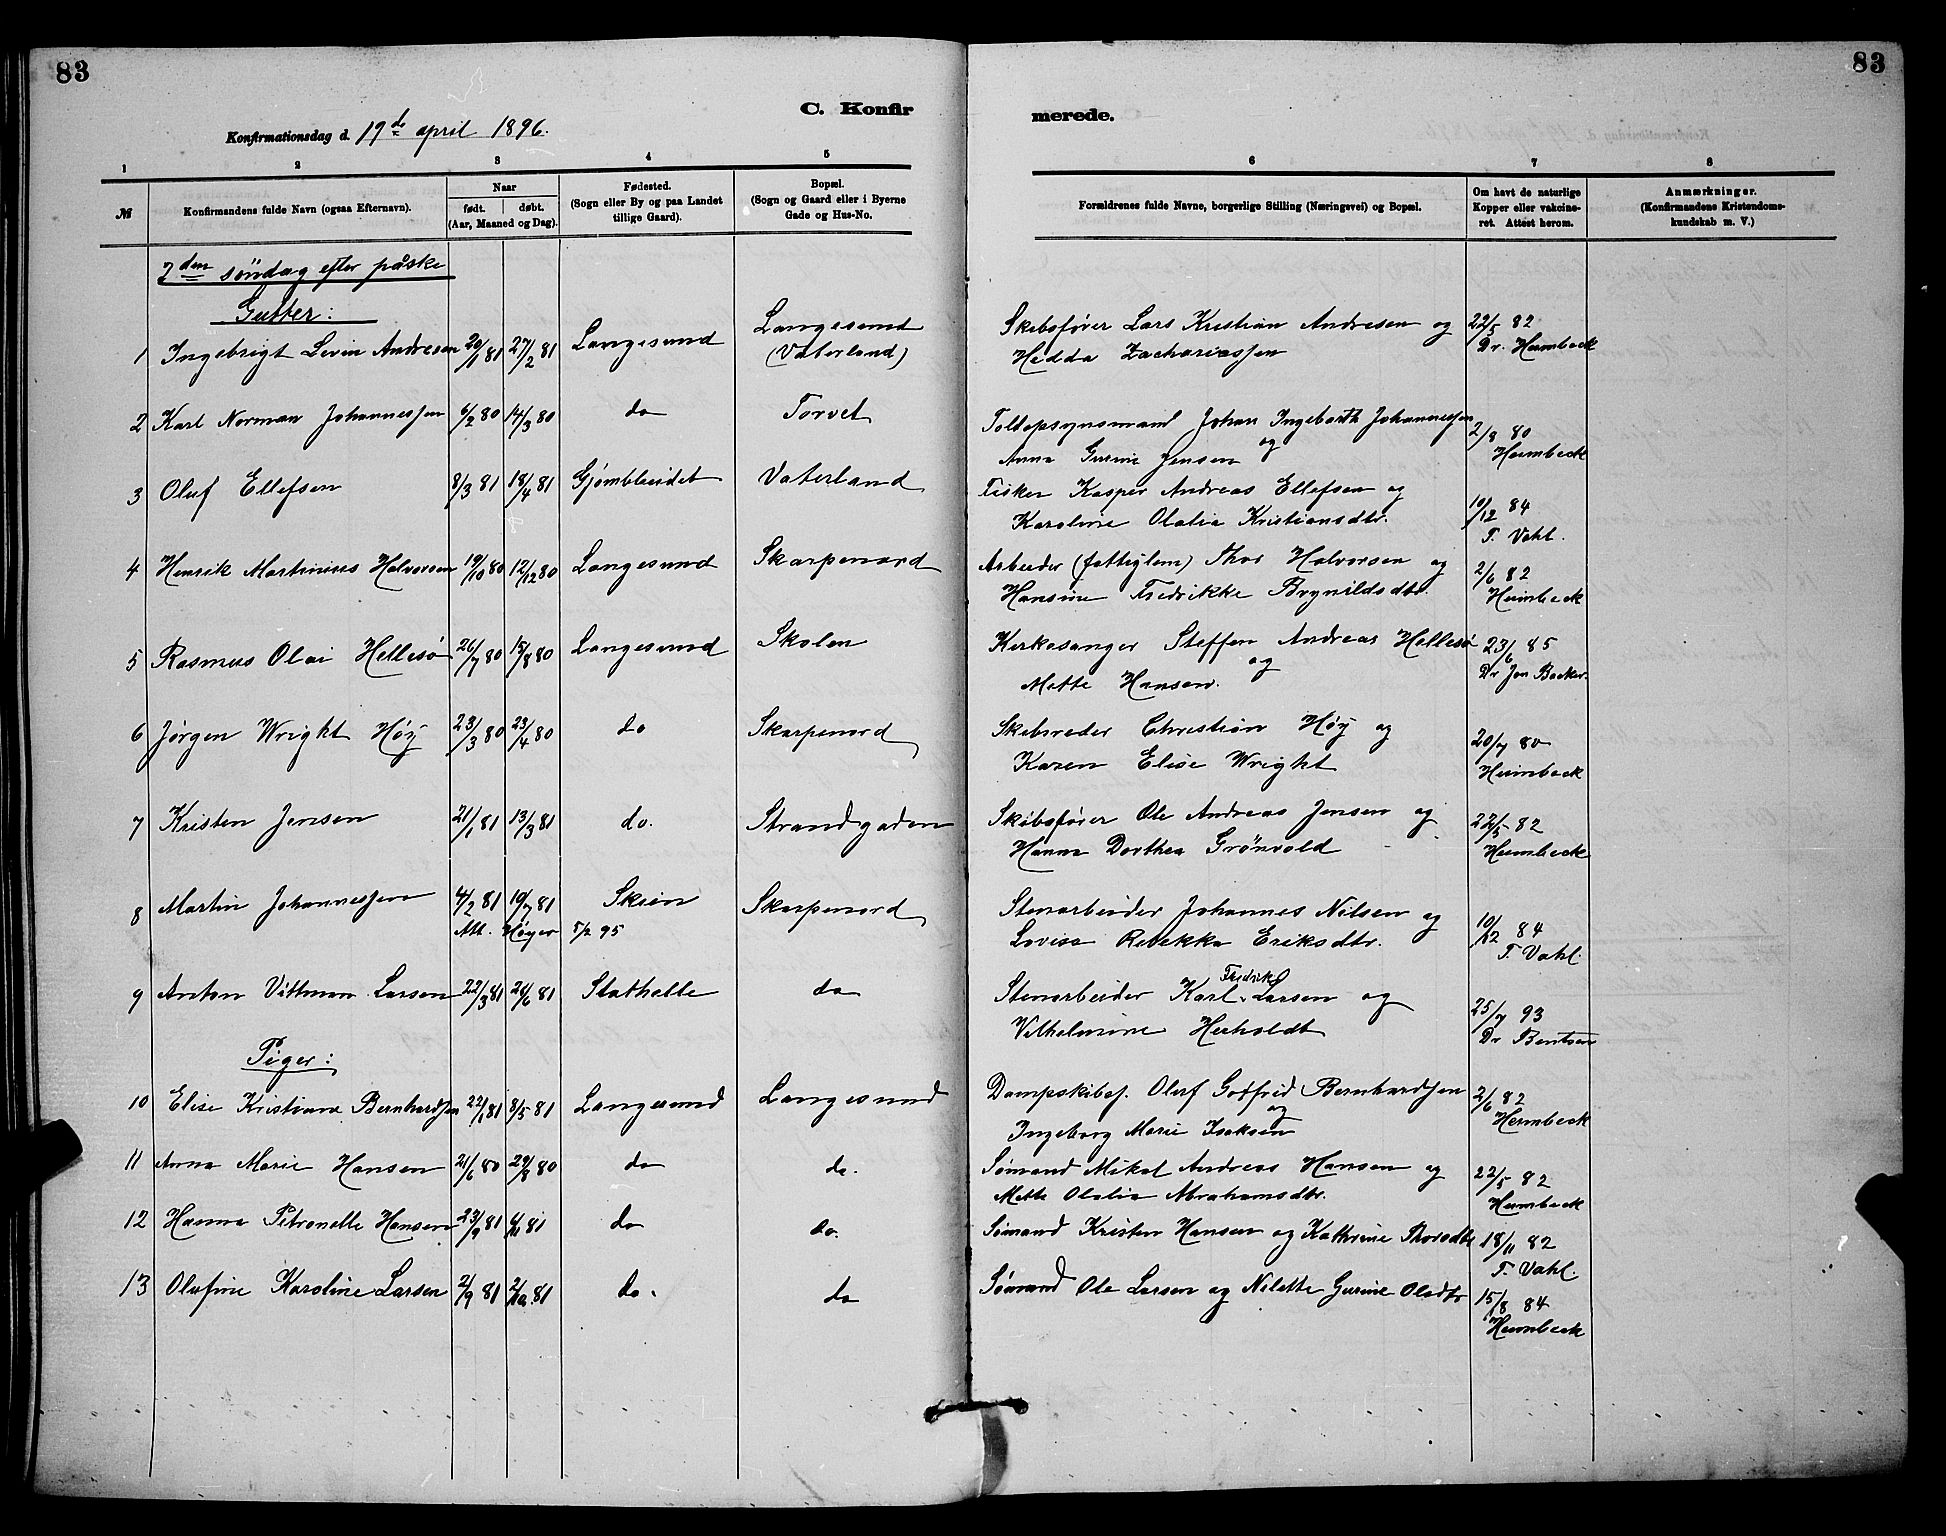 83
83
C. Konfir
merede.
Konfirmationsdag d. 19de april 1896.
1 2 3 4 5 6 7 8
№
Konfirmandens fulde Navn (ogsaa Efternavn).
Naar
født. døbt.
(Aar, Maaned og Dag).
Fødested.
(Sogn eller By og paa Landet
tillige Gaard).
Bopæl.
(Sogn og Gaard eller i Byerne
Gade og Hus-No.
Forældrenes fulde Navne, borgerlige Stilling (Næringsvei) og Bopæl.
Om havt de naturlige
Kopper eller vakcine-
ret. Attest herom.
Anmærkninger.
(Konfirmandens Kristendoms-
kundskab m. V.)
2den søndag efter påske
Gutter:
1 Ingebrigt Levin Andresen 20/1 81 27/2 81 Langesund Langesund (Vaterland) Skibsfører Lars Kristian Andresen og 22/5 82
Hedda Zachariassen Dr. Heimbeck
2 Karl Norman Johannessen 6/2 80 14/3 80 do Torvet Toldopsynsmand Johan Johannessen 2/8 80
og Anna Gurine Jensen Heimbeck
3 Oluf Ellefsen 8/3 81 18/4 81 Vaterland Fisker Kasper Andreas Ellefsen og 10/12 84
Karoline Olalia Kristiansdtr. T. Vahl.
4 Henrik Martinius Halvorsen 19/10 80 12/12 80 Langesund Skarpenord Arbeider (fattiglem) Thor Halvorsen og 2/6 82
Hansine Fredrikke Brynildsdtr. Heimbeck
5 Rasmus Olai Hellesø 26/7 80 15/8 80 Langesund Skolen Kirkesanger Steffen Andreas Hellesø 23/6 85
og Mette Hansen. Dr Jon Backer.
6 Jørgen Wright Høy 23/3 80 23/4 80 do Skarpenord Skibsreder Christian Høy og 20/7 80
Karen Elise Wright Heimbeck
7 Kristen Jensen 21/1 81 13/3 81 do. Strandgaden Skibsfører Ole Andreas Jensen og 22/5 82
Hanna Dorthea Grönvold Heimbeck
8 Martin Johannessen 4/2 81 19/7 81 Skien Skarpenord Stenarbeider Johannes Nilsen og 10/12 84
Att. Høyer 5/2 95 Lovisa Rebekka Eriksdtr. T. Vahl.
9 Anton Vittman Larsen 22/3 81 26/6 81 Stathelle do Stenarbeider Karl Fredrik Larsen og 25/7 93
Vilhelmine Herholdt Dr Bentsen
Piger:
10 Elise Kristiane Bernhardsen 22/1 81 8/5 81 Langesund Langesund Dampskibsf. Oluf Gotfred Bernhardsen 2/6 82
og Ingeborg Marie Isaksen Heimbeck
11 Anna Marie Hansen 21/6 80 29/8 80 do do. Sømand Mikal Andreas Hansen og 22/5 82
Mette Olalia Abrahamsdtr. Heimbeck
12 Hanna Petronelle Hansen 23/9 81 81 do do. Sømand Kristen Hansen og Kathrine Thorsdtr 18/11 82
T. Vahl.
13 Olufine Karoline Larsen 2/9 81 2/10 81 do. do Sømand Ole Larsen og Nilette Gurine Olsdtr 15/8 84
Heimbeck